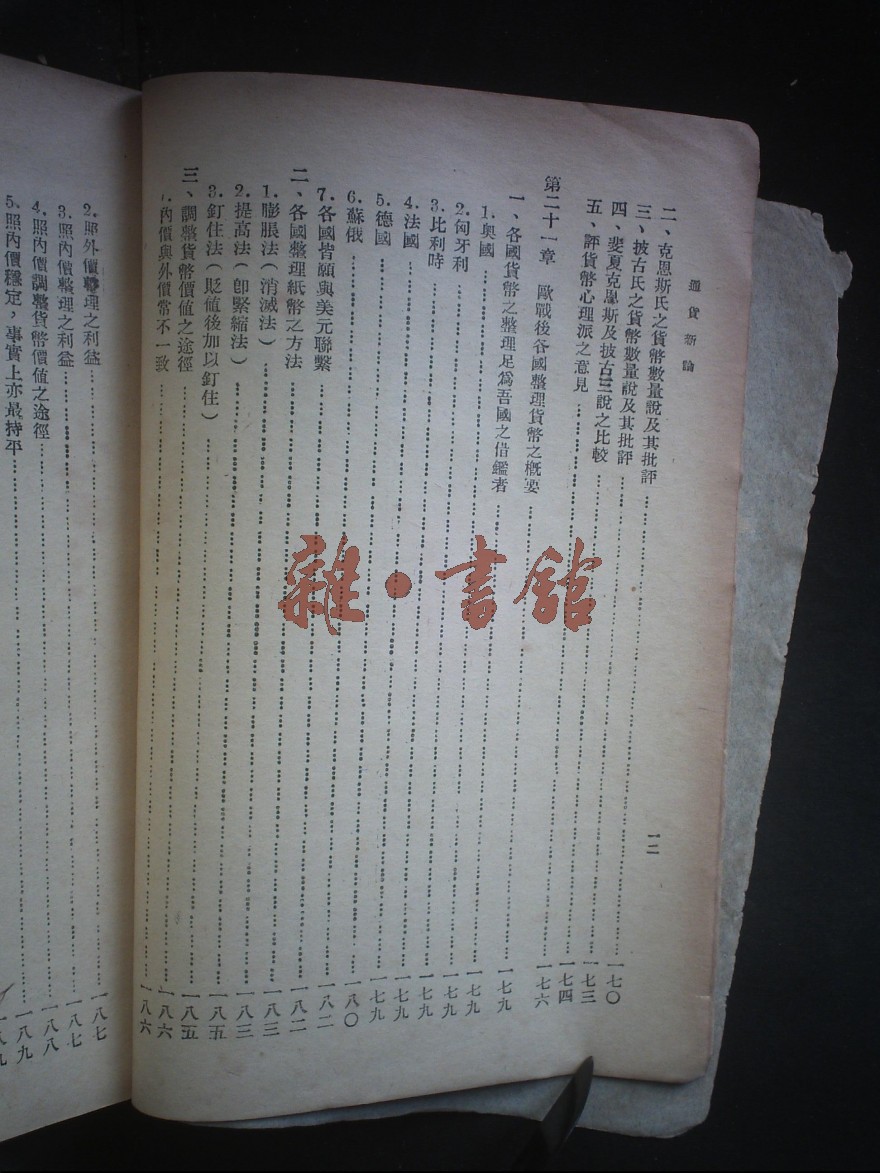 通貨新論
一二
二、克恩斯氏之貨幣數量說及其批評……一七〇
三、披古氏之貨幣數量說及其批評……一七三
四、斐夏克恩斯及披古三說之比較……一七四
五、評貨幣心理派之意見……一七六
第二十一章 歐戰後各國整理貨幣之概要……一七九
一、各國貨幣之整理足爲吾國之借鑑者……一七九
1.奧國……一七九
2.匈牙利……一七九
3.比利時……一七九
4.法國……一七九
5.德國……一八〇
6.蘇俄……一八〇
7.各國皆願與美元聯繫……一八二
二、各國整理紙幣之方法……一八二
1.膨脹法(消滅法)……一八三
2.提高法(卽緊縮法)……一八三
3.釘住法(貶值後加以釘住)……一八五
三、調整貨幣價值之途徑……一八五
1.內價與外價常不一致……一八六
2.照外價整理之利益……一八七
3.照內價整理之利益……一八七
4.照內價調整貨幣價值之途徑……一八八
5.照內價穩定，事實上亦最持平……一八九
雜·書館